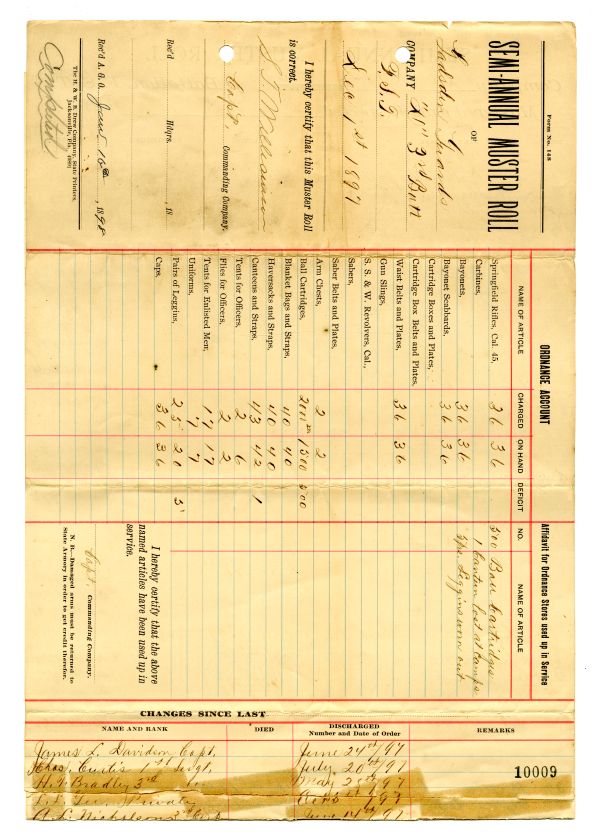 Form No. 148
SEMI-ANNUAL MUSTER ROLL
OF
Gadsden Guards
COMPANY "K" 3rd Batt
F. S. T.
Dec 1st 1897
I hereby certify that this Muster Roll
is correct.
Capt. Commanding Company.
Rec'd Hdqrs. 18
Rec'd A. G. O. Jany 10th 1898
The H. & W. B. Drew Company, State Printers,
Jacksonville, Fla.
ORDNANCE ACCOUNT
NAME OF ARTICLE CHARGED ON HAND DEFICIT
Springfield Rifles, Cal. 45, 36 36
Carbines,
Bayonets, 36 36
Bayonet Scabbards, 36 36
Cartridge Boxes and Plates,
Cartridge Box Belts and Plates,
Waist Belts and Plates, 36 36
Gun Slings,
S. S. & W. Revolvers, Cal.,
Sabers,
Saber Belts and Plates,
Arm Chests, 2 2
Ball Cartridges, 2000 1500 500
Blanket Bags and Straps, 40 40
Haversacks and Straps, 40 40
Canteens and Straps, 43 42 1
Tents for Officers, 2 6
Flies for Officers, 2 2
Tents for Enlisted Men, 17 17
Uniforms, 7 7
Pairs of Leggins, 25 20 5
Caps, 36 36
Affidavit for Ordnance Stores used up in Service
NO. NAME OF ARTICLE
500 Ball Cartridges
1 Canteen lost at Camp
prs. Leggins worn out
I hereby certify that the above
named articles have been used up in
service.
Capt. Commanding Company.
N. B.—Damaged arms must be returned to
State Armory in order to get credit therefor.
CHANGES SINCE LAST
NAME AND RANK DIED DISCHARGED Number and Date of Order REMARKS
James L. Davidson Capt. June 24th/97
Chas. Curtis 1st Sergt. July 20th/97
H. T. Bradley 3rd May 25th/97
Lee Private /97
A. L. Nicholson 3rd Corp June 14th/97
10009